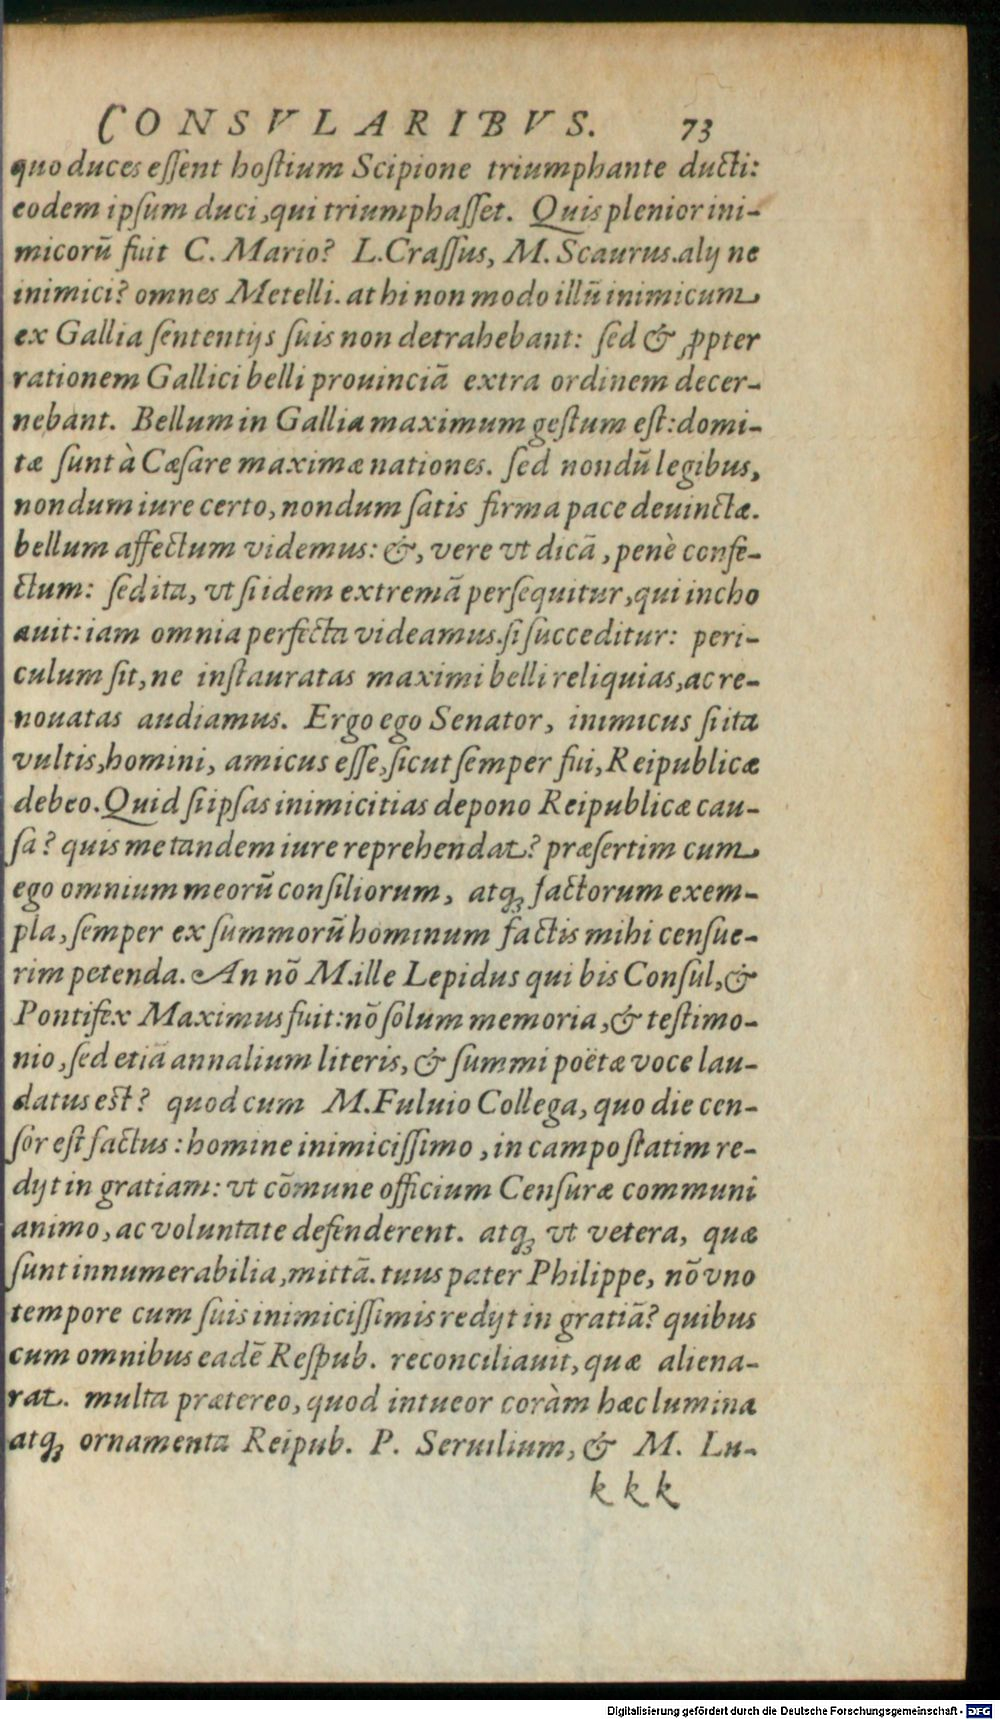 CONSVLARIBVS. 73
quo duces essent hostium Scipione triumphante ducti:
eodem ipsum duci, qui triumphasset. Quis plenior ini-
micorū fuit C. Mario? L. Crassus, M. Scaurus. alij ne
inimici? omnes Metelli. at hi non modo illū inimicum
ex Gallia sententijs suis non detrahebant: sed & ꝓpter
rationem Gallici belli prouinciā extra ordinem decer-
nebant. Bellum in Gallia maximum gestum est: domi-
tæ sunt à Cæsare maximæ nationes. sed nondū legibus,
nondum iure certo, nondum satis firma pace deuinctæ.
bellum affectum videmus: &, vere vt dicā, penè confe-
ctum: sed ita, vt si idem extremā persequitur, qui incho
auit: iam omnia perfecta videamus. si succeditur: peri-
culum sit, ne instauratas maximi belli reliquias, ac re-
nouatas audiamus. Ergo ego Senator, inimicus si ita
vultis, homini, amicus esse, sicut semper fui, Reipublicæ
debeo. Quid si ipsas inimicitias depono Reipublicæ cau-
sa? quis me tandem iure reprehendat? præsertim cum
ego omnium meorū consiliorum, atqꝫ factorum exem-
pla, semper ex summorū hominum factis mihi censue-
rim petenda. An nō M. ille Lepidus qui bis Consul, &
Pontifex Maximus fuit: nō solum memoria, & testimo-
nio, sed etiā annalium literis, & summi poëtæ voce lau-
datus est? quod cum M. Fuluio Collega, quo die cen-
sor est factus: homine inimicissimo, in campo statim re-
dijt in gratiam: vt cōmune officium Censuræ communi
animo, ac voluntate defenderent. atqꝫ vt vetera, quæ
sunt innumerabilia, mittā. tuus pater Philippe, nō vno
tempore cum suis inimicissimis redijt in gratiā? quibus
cum omnibus eadē Respub. reconciliauit, quæ aliena-
rat. multa prætereo, quod intueor coràm hæc lumina
atqꝫ ornamenta Reipub. P. Seruilium, & M. Lu-
kkk
Digitalisierung gefördert durch die Deutsche Forschungsgemeinschaft - DFG